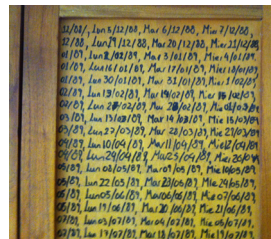 12/88, Lun 5/12/88, Mar 6/12/88, Mie 7/12/88,
12/88, Lun 19/12/88, Mar 20/12/88, Mie 21/12/88
01/89, Lun 2/02/89, Mar 3/01/89, Mie 4/01/89,
01/89, Lun 16/01/89, Mar 17/01/89, Mie 18/01/89,
01/89, Lun 30/01/89, Mar 31/01/89, Mie 1/02/89
02/89, Lun 13/02/89, Mar 14/02/89, Mie 15/02/89,
02/89, Lun 27/02/89, Mar 28/02/89, Mie
03/89, Lun 13/03/89, Mar 14/03/89, Mie 15/03/89
03/89, Lun 27/03/89, Mar 28/03/89, Mie 29/03/89
04/89, Lun 10/04/89, Mar 11/04/89, Mie 12/04/89
04/89, Lun 24/04/89, Mar 25/04/89, Mie 26/04/
05/89, Lun 08/05/89, Mar 09/05/89, Mie 10/05/89,
05/89, Lun 22/05/89, Mar 23/05/89, Mie 24/05/89,
06/89, Lun 05/06/89, Mar 06/06/89, Mie 07/06/89,
06/89, Lun 19/06/89, Mar 20/06/89, Mie 21/06/89,
07/89, Lun 03/07/89, Mar 04/07/89, Mie 05/07/89,
07/89, Lun 17/07/89, Mar 18/07/89, Mie 19/07/89,